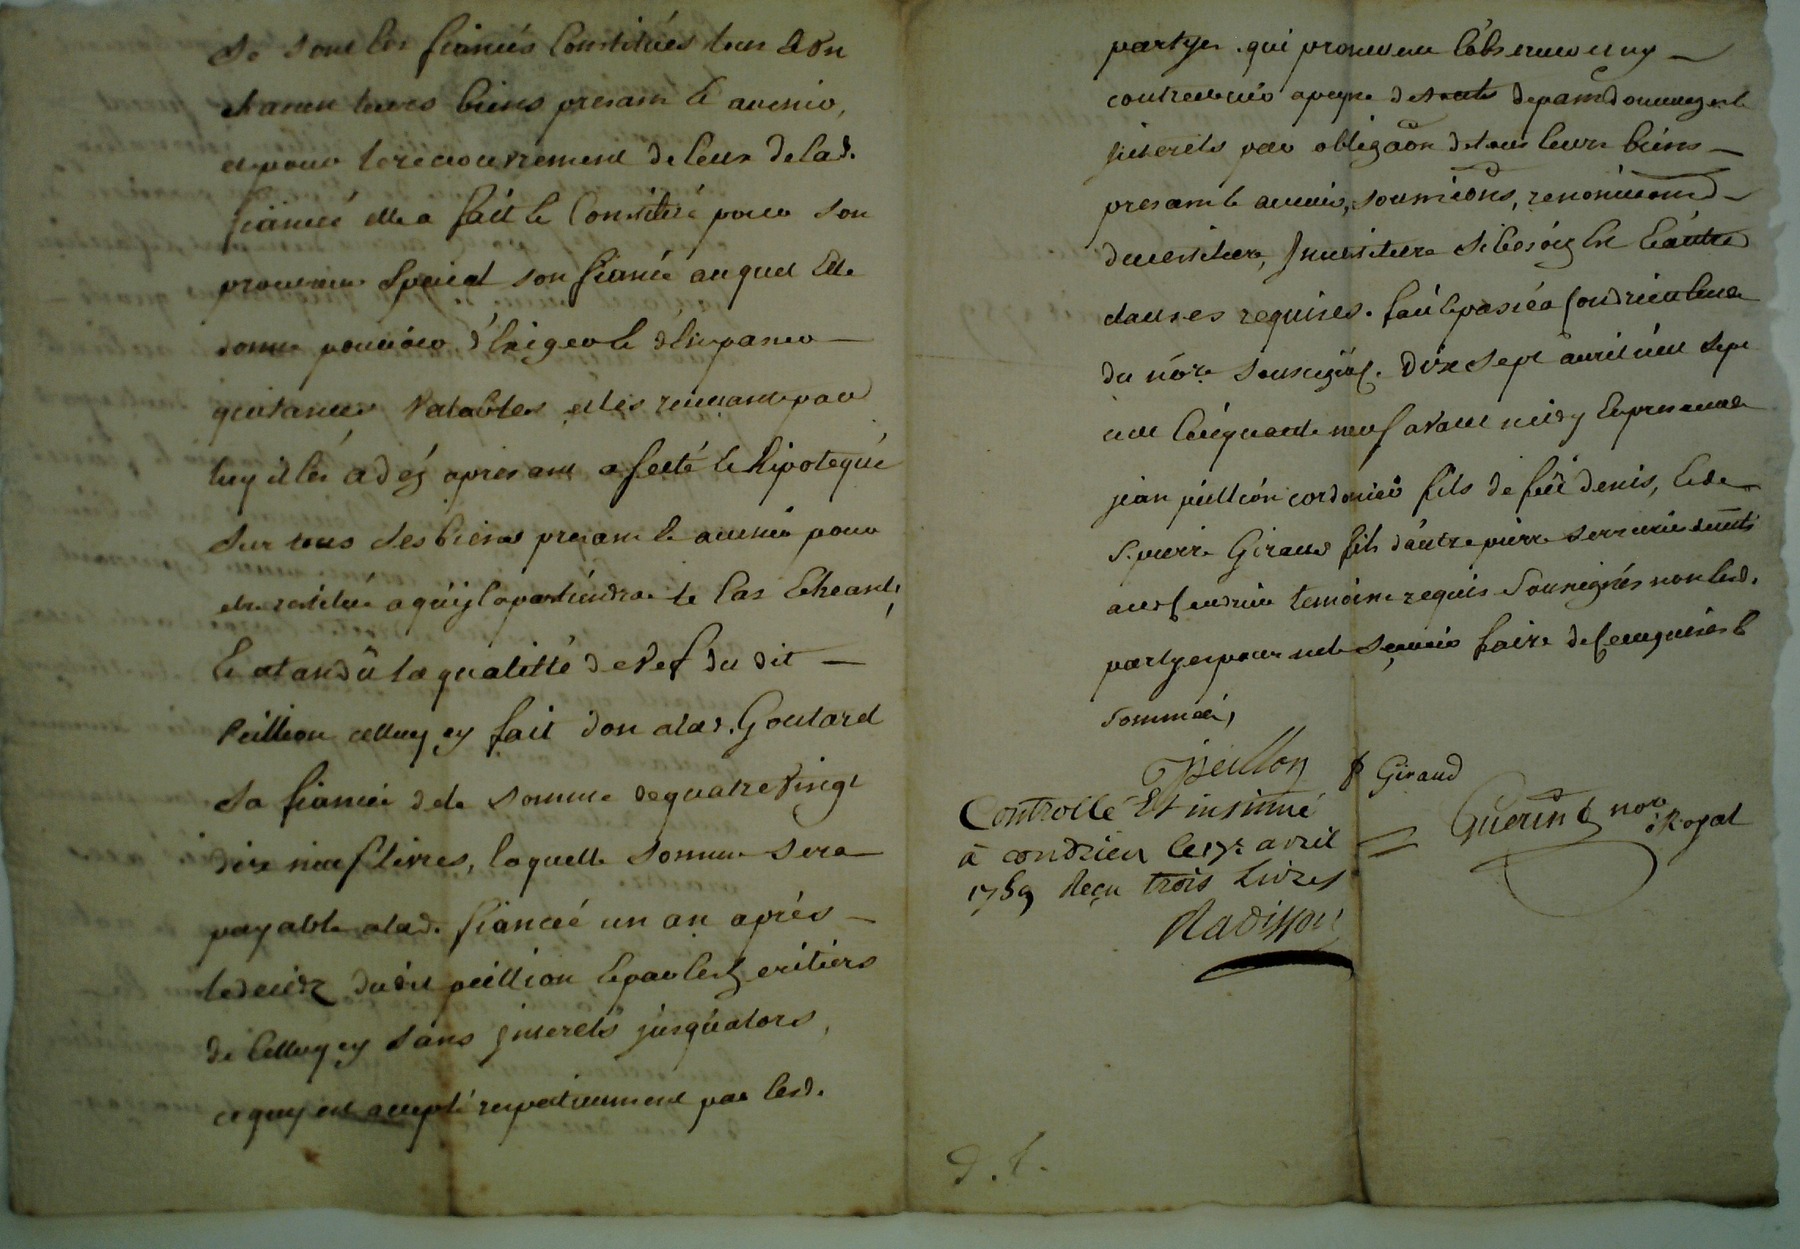 Se sont les fiancés Constitués tous & Un
chacun leurs biens presant & avenir,
et pour le recouvrement de ceux de lad.
fiancée elle a fait & Constitué pour son
procureur Special son fiancé auquel Elle
donne pouvoir d'Exiger & d'En passer
quitances Valables et les recevant par
luy il les a dez apresant afecté & hipotequé
Sur tous Ses biens presant & avenir pour
etre restitué a qu'il apartiendra le Cas Echeant,
Et atandû la qualitté de Vef du dit
Peillion celluy cy fait don alad. Goutard
Sa fiancée de la somme de quatre Vingt
dix neuf livres, laquelle somme sera
payable alad. fiancée un an aprés
le deceidz dudit peillion & par les heritiers
de Celluy cy Sans jnterets jusqu'alors,
ce quy est accepté respectivement par lesd.
partyes. qui promettent l'observer et ny
contrevenir apeyne de touts depans domages &
jnterets par obligaôn de tous leurs biens
presant & avenir, soumiôns, renonciations
devestiture, Jnvestiture Si besoig Est & autres
clauses requises. fait & passé a Condrieu Etude
du nôre Sousigné. Dix Sept avril mil Sept
cent Cinquante neuf avant midy En presance de
jean peillion cordonier fils de feû denis, & de
S. pierre Giraud fils d'autre pierre serrurier demts
aud. Condrieu temoins requis Sousignés non lesd.
partyes pour ne le Sçavoir faire de ce enquises &
Sommées,
Jpeillon P Giraud
Guerin nore Royal
Controllé Et insinué
à condrieu le 17e avril
1759 Reçu trois Livres
Radisson